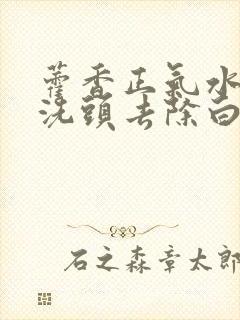 藿香正氣水
洗頭去除白
石之森章太郎